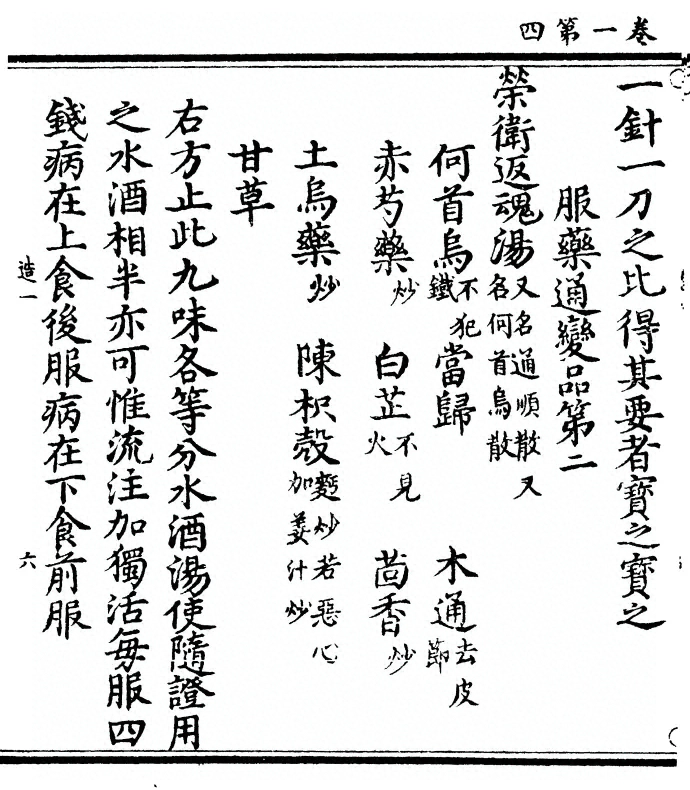 卷一第四
一針一刀之比得其要者寶之寶之
服藥通變品第二
榮衛返魂湯又名通順散又名何首烏散
何首烏不犯鐵 當歸 木通去皮節
赤芍藥炒 白芷不見火 茴香炒
土烏藥炒 陳枳殼麪炒若惡心加姜汁炒
甘草
右方止此九味各等分水酒湯使隨證用
之水酒相半亦可惟流注加獨活每服四
錢病在上食後服病在下食前服
造一
六